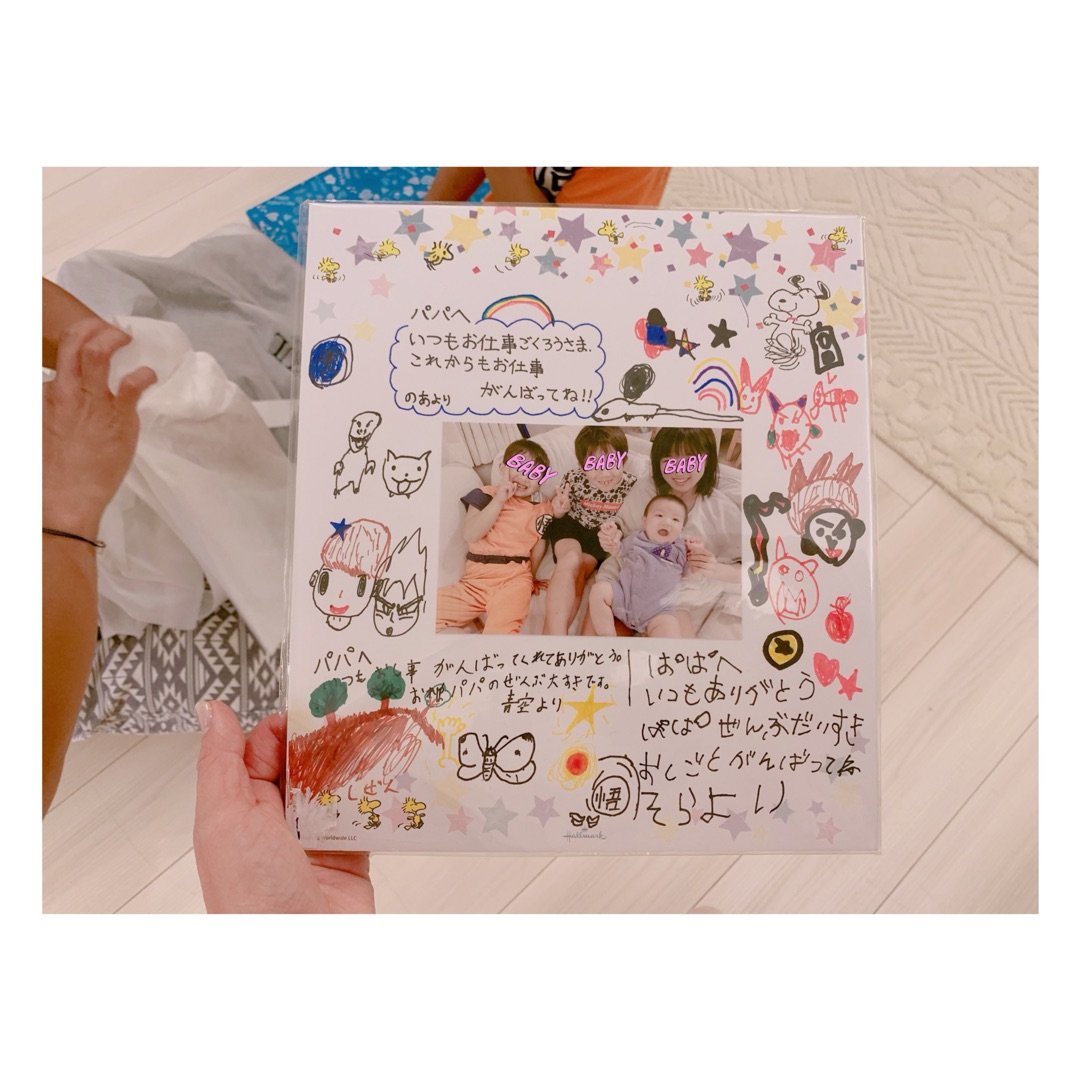 パパへ
いつもお仕事ごくろうさま、
これからもお仕事
がんばってね!!
のあより
BABY
BABY
BABY
パパへ
つも 事 がんばってくれてありがとう。
パパのぜんぶ大すきです。
青空より
ぱぱへ
いつもありがとう
ぱぱ ぜんぶだいすき
おしごとがんばってね
そらより
悟
しぜん
Worldwide LLC
Hallmark